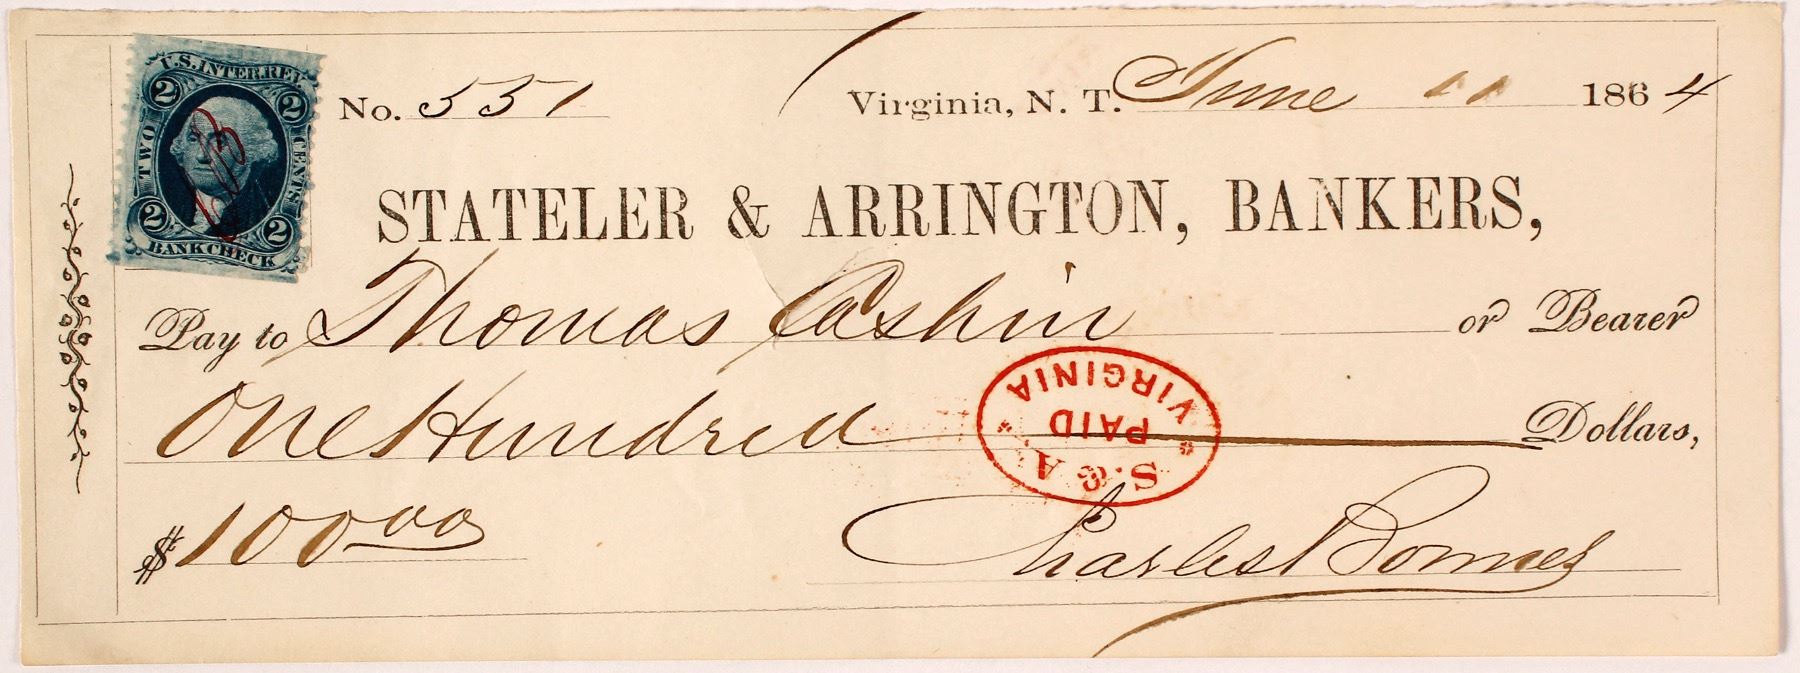 U.S. INTER. REV.
2 2
TWO CENTS
2 2
BANK CHECK
No. 551 Virginia, N. T. June 11 1864
STATELER & ARRINGTON, BANKERS,
Pay to Thomas Cashin or Bearer
One Hundred Dollars,
$100.00 Charles Bonner
S. & A.
PAID
VIRGINIA